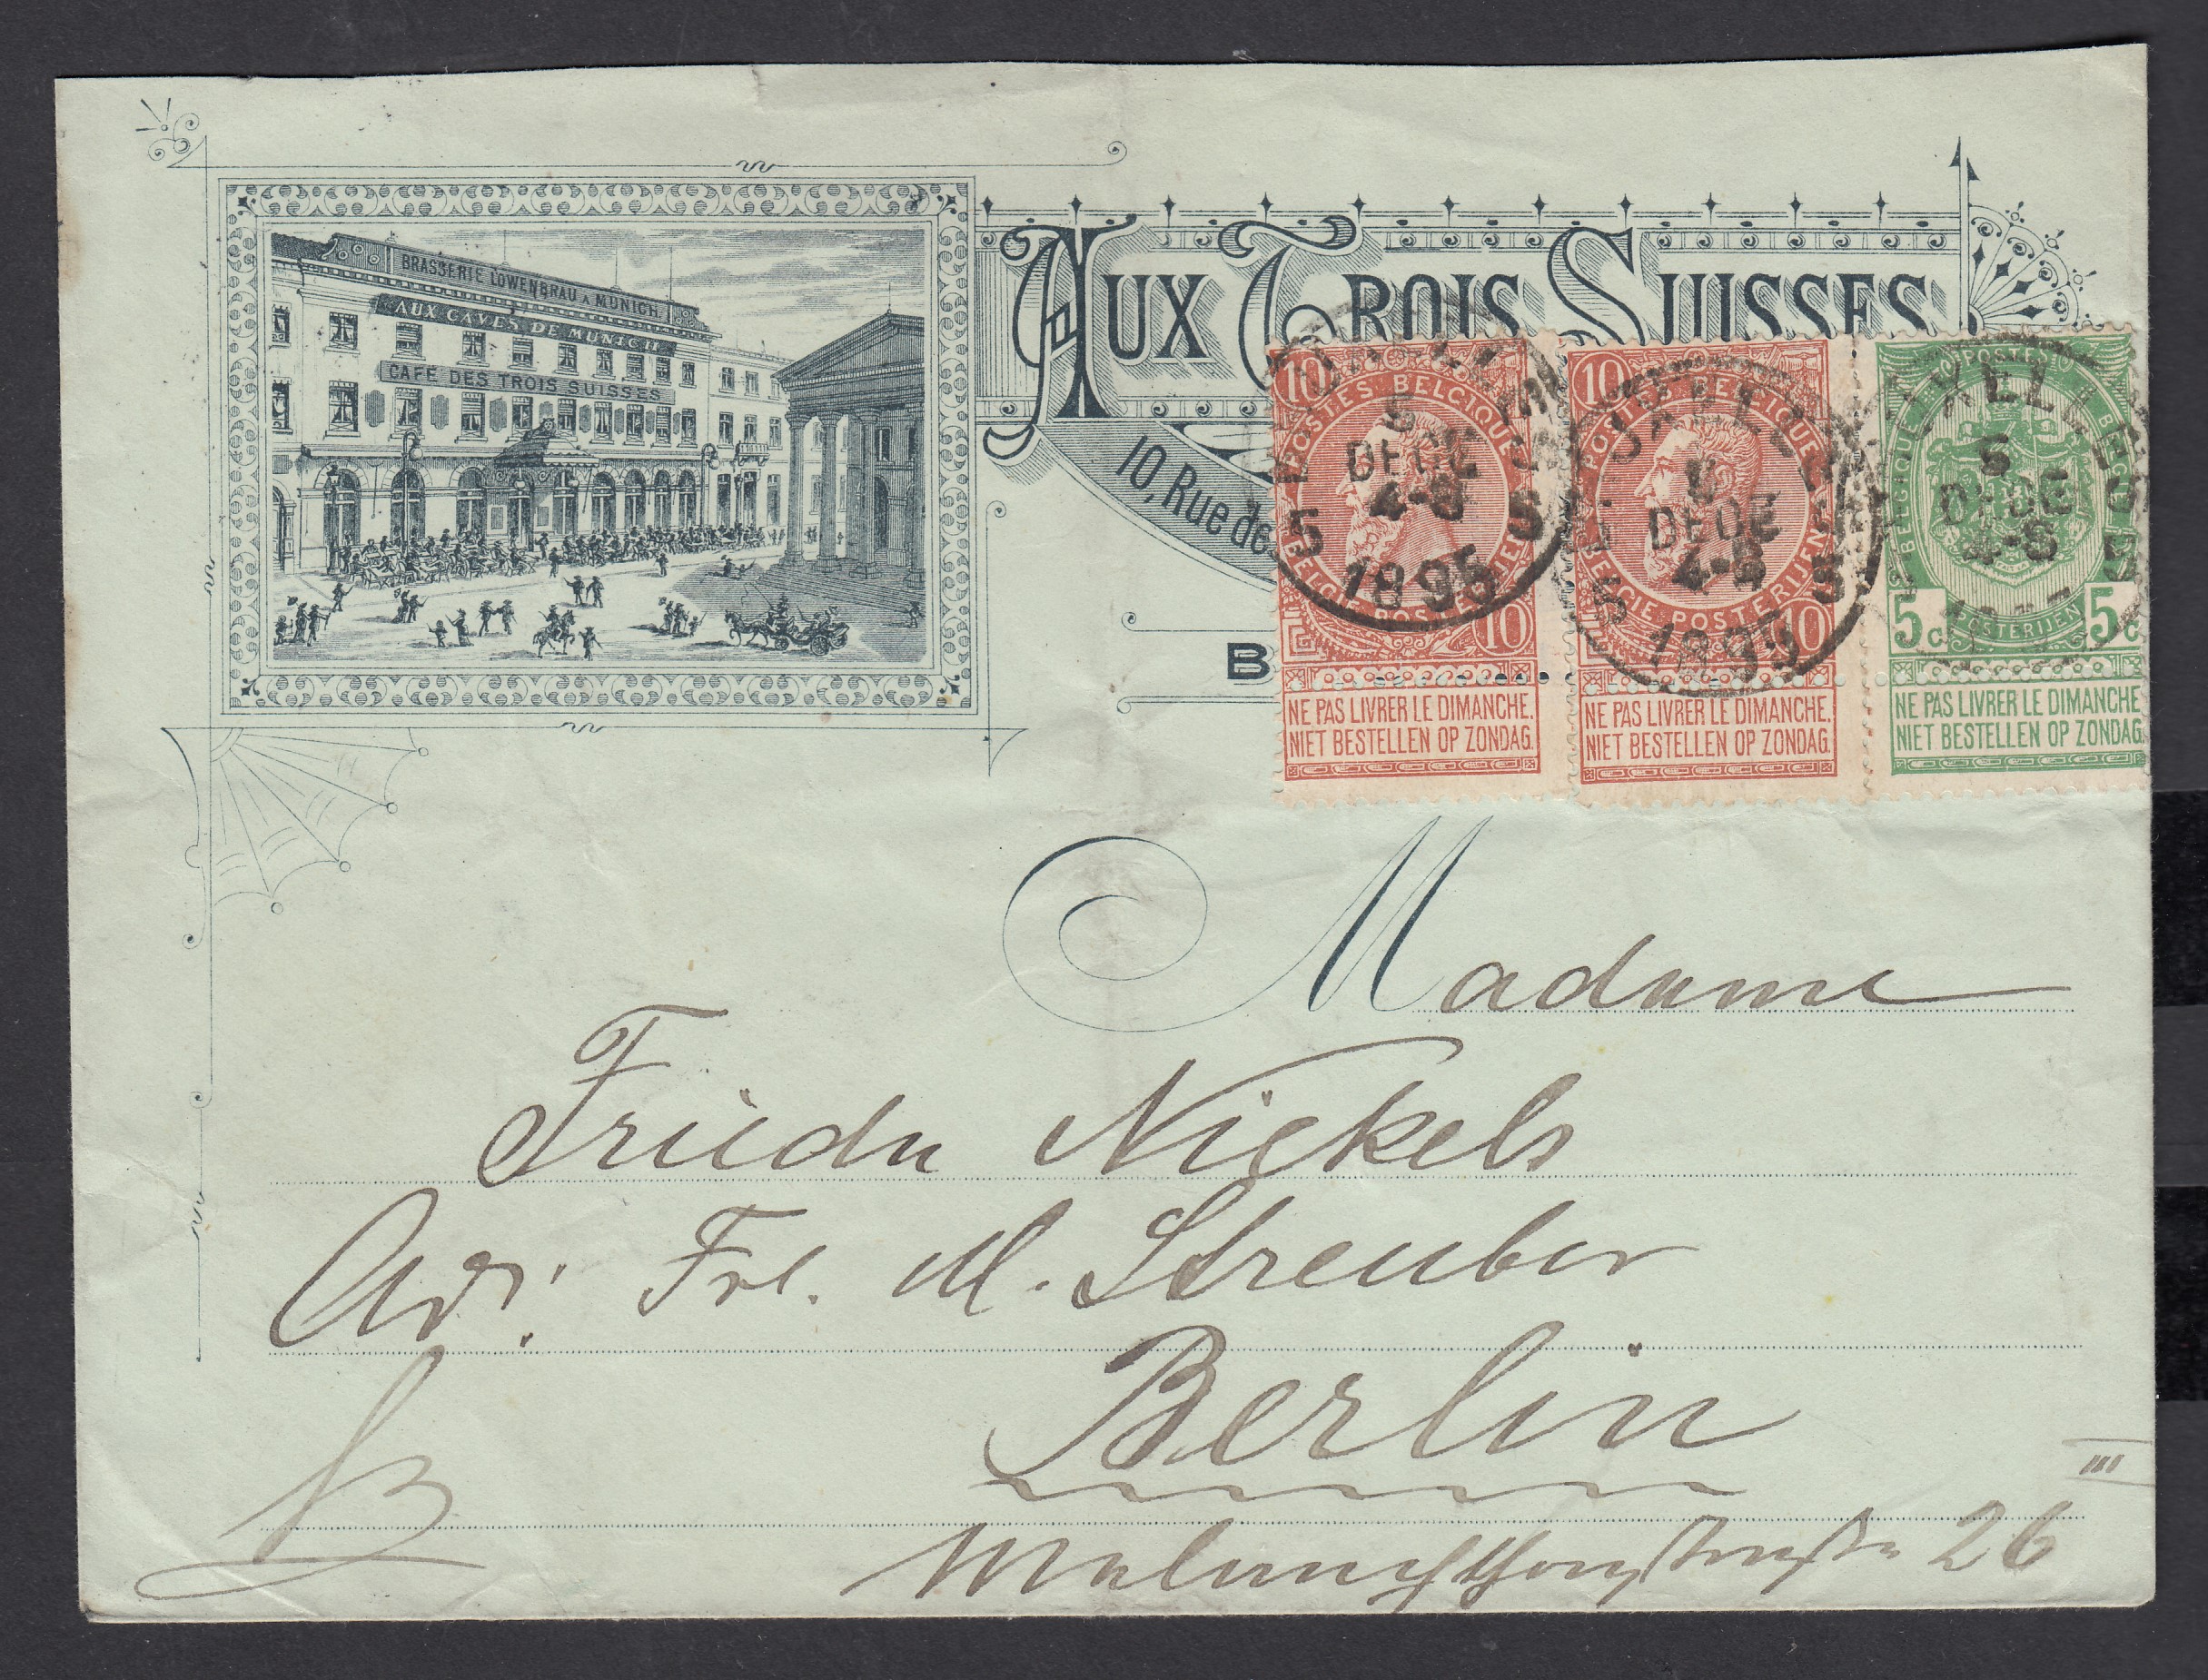 BRASSERIE LÖWENBRAU A MUNICH.
AUX CAVES DE MUNICH
CAFE DES TROIS SUISSES
AUX TROIS SUISSES
10, Rue de
B
10
POSTES BELGIQUE
BELGIE POSTERIJEN
10
NE PAS LIVRER LE DIMANCHE.
NIET BESTELLEN OP ZONDAG.
5 DECE 4-8 5
1895
10
POSTES BELGIQUE
BELGIE POSTERIJEN
10
NE PAS LIVRER LE DIMANCHE.
NIET BESTELLEN OP ZONDAG.
DECE
5
1895
POSTES
BELGIQUE BELGIË
5c POSTERIJEN 5c
NE PAS LIVRER LE DIMANCHE
NIET BESTELLEN OP ZONDAG.
5
DECE
4-8
5
Madame
Frieda Nickels
Adr: Frl. M. Streuber
Berlin
III
Melanchthonstraße 26